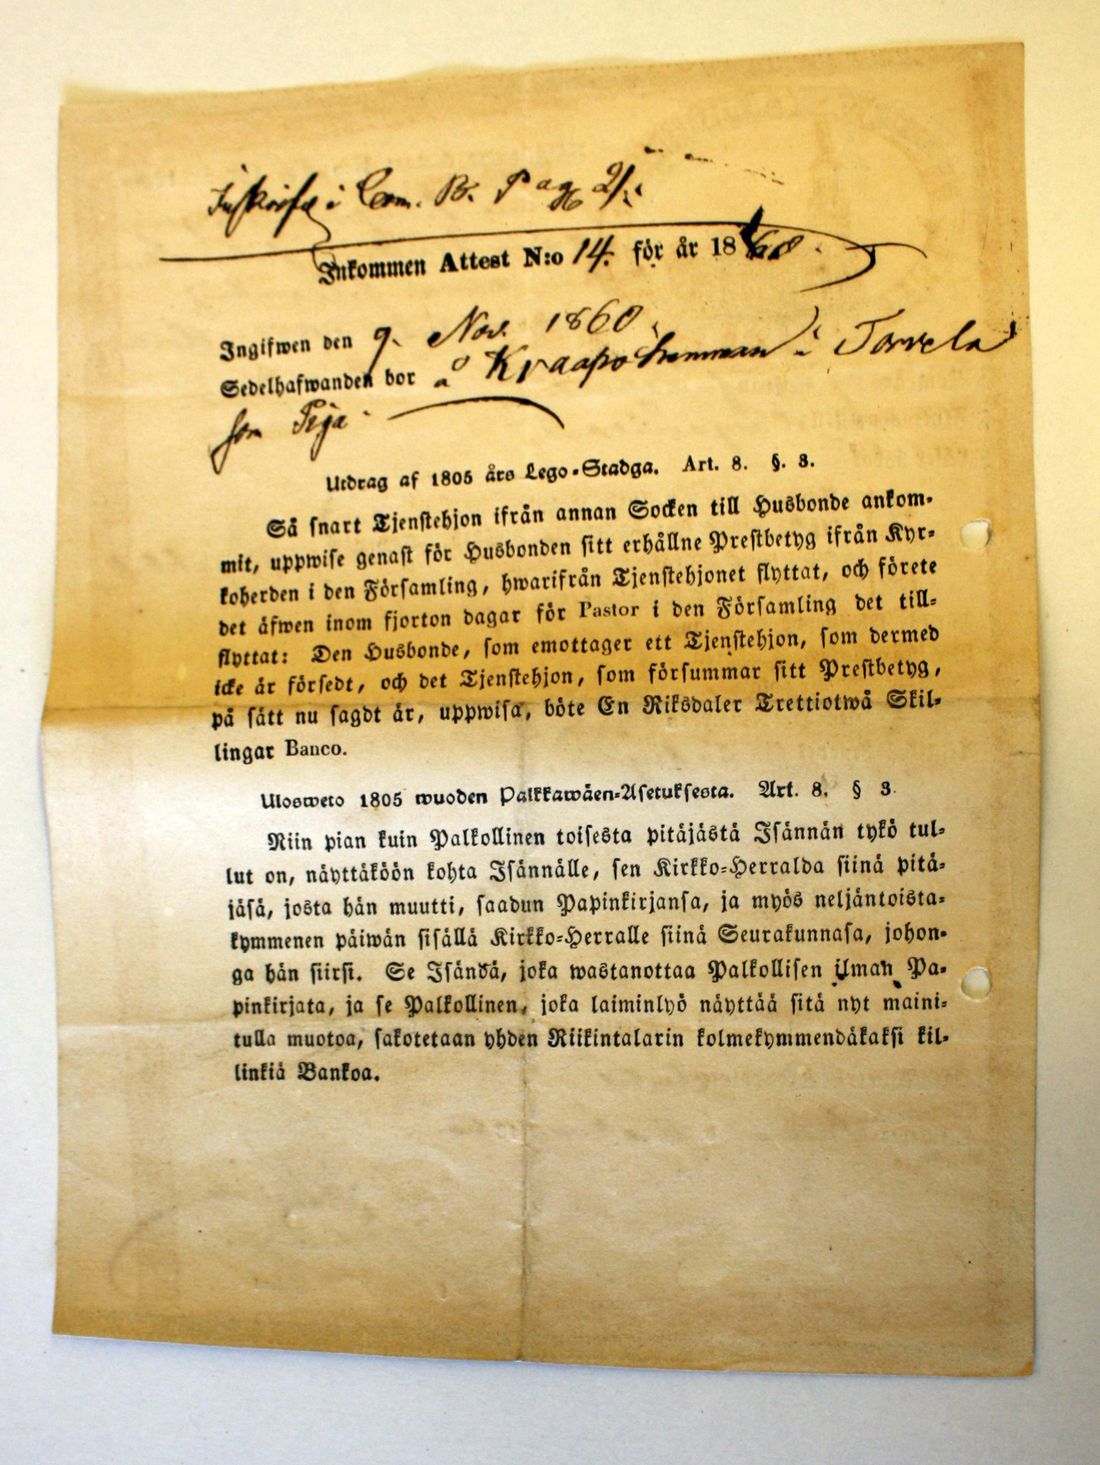 Inskrifn i Com. B. Pag 21.
Inkommen Attest N:o 14. för år 1860.
Ingifwen den 9. Nov. 1860.
Sedelhafwanden bor å Kraapo hemman i Torvela
som Piga.
Utdrag af 1805 års Lego-Stadga. Art. 8. §. 3.
Så snart Tjenstehjon ifrån annan Socken till Husbonde ankom-
mit, uppwise genast för Husbonden sitt erhållne Prestbetyg ifrån Kyr-
koherden i den Församling, hwarifrån Tjenstehjonet flyttat, och förete
det äfwen inom fjorton dagar för Pastor i den Församling det till-
flyttat: Den Husbonde, som emottager ett Tjenstehjon, som dermed
icke är försedt, och det Tjenstehjon, som försummar sitt Prestbetyg,
på sätt nu sagdt är, uppwisa, böte En Riksdaler Trettiotwå Skil-
lingar Banco.
Ulosweto 1805 wuoden Palkkawäen-Asetuksesta. Art. 8. § 3.
Niin pian kuin Palkollinen toisesta pitäjästä Isännän tykö tul-
lut on, näyttäköön kohta Isännälle, sen Kirkko-Herralda siinä pitä-
jäsä, josta hän muutti, saadun Papinkirjansa, ja myös neljäntoista-
kymmenen päiwän sisällä Kirkko-Herralle siinä Seurakunnasa, johon-
ga hän siirsi. Se Isändä, joka wastanottaa Palkollisen ilman Pa-
pinkirjata, ja se Palkollinen, joka laiminlyö näyttää sitä nyt maini-
tulla muotoa, sakotetaan yhden Riikintalarin kolmekymmendäkaksi kil-
linkiä Bankoa.